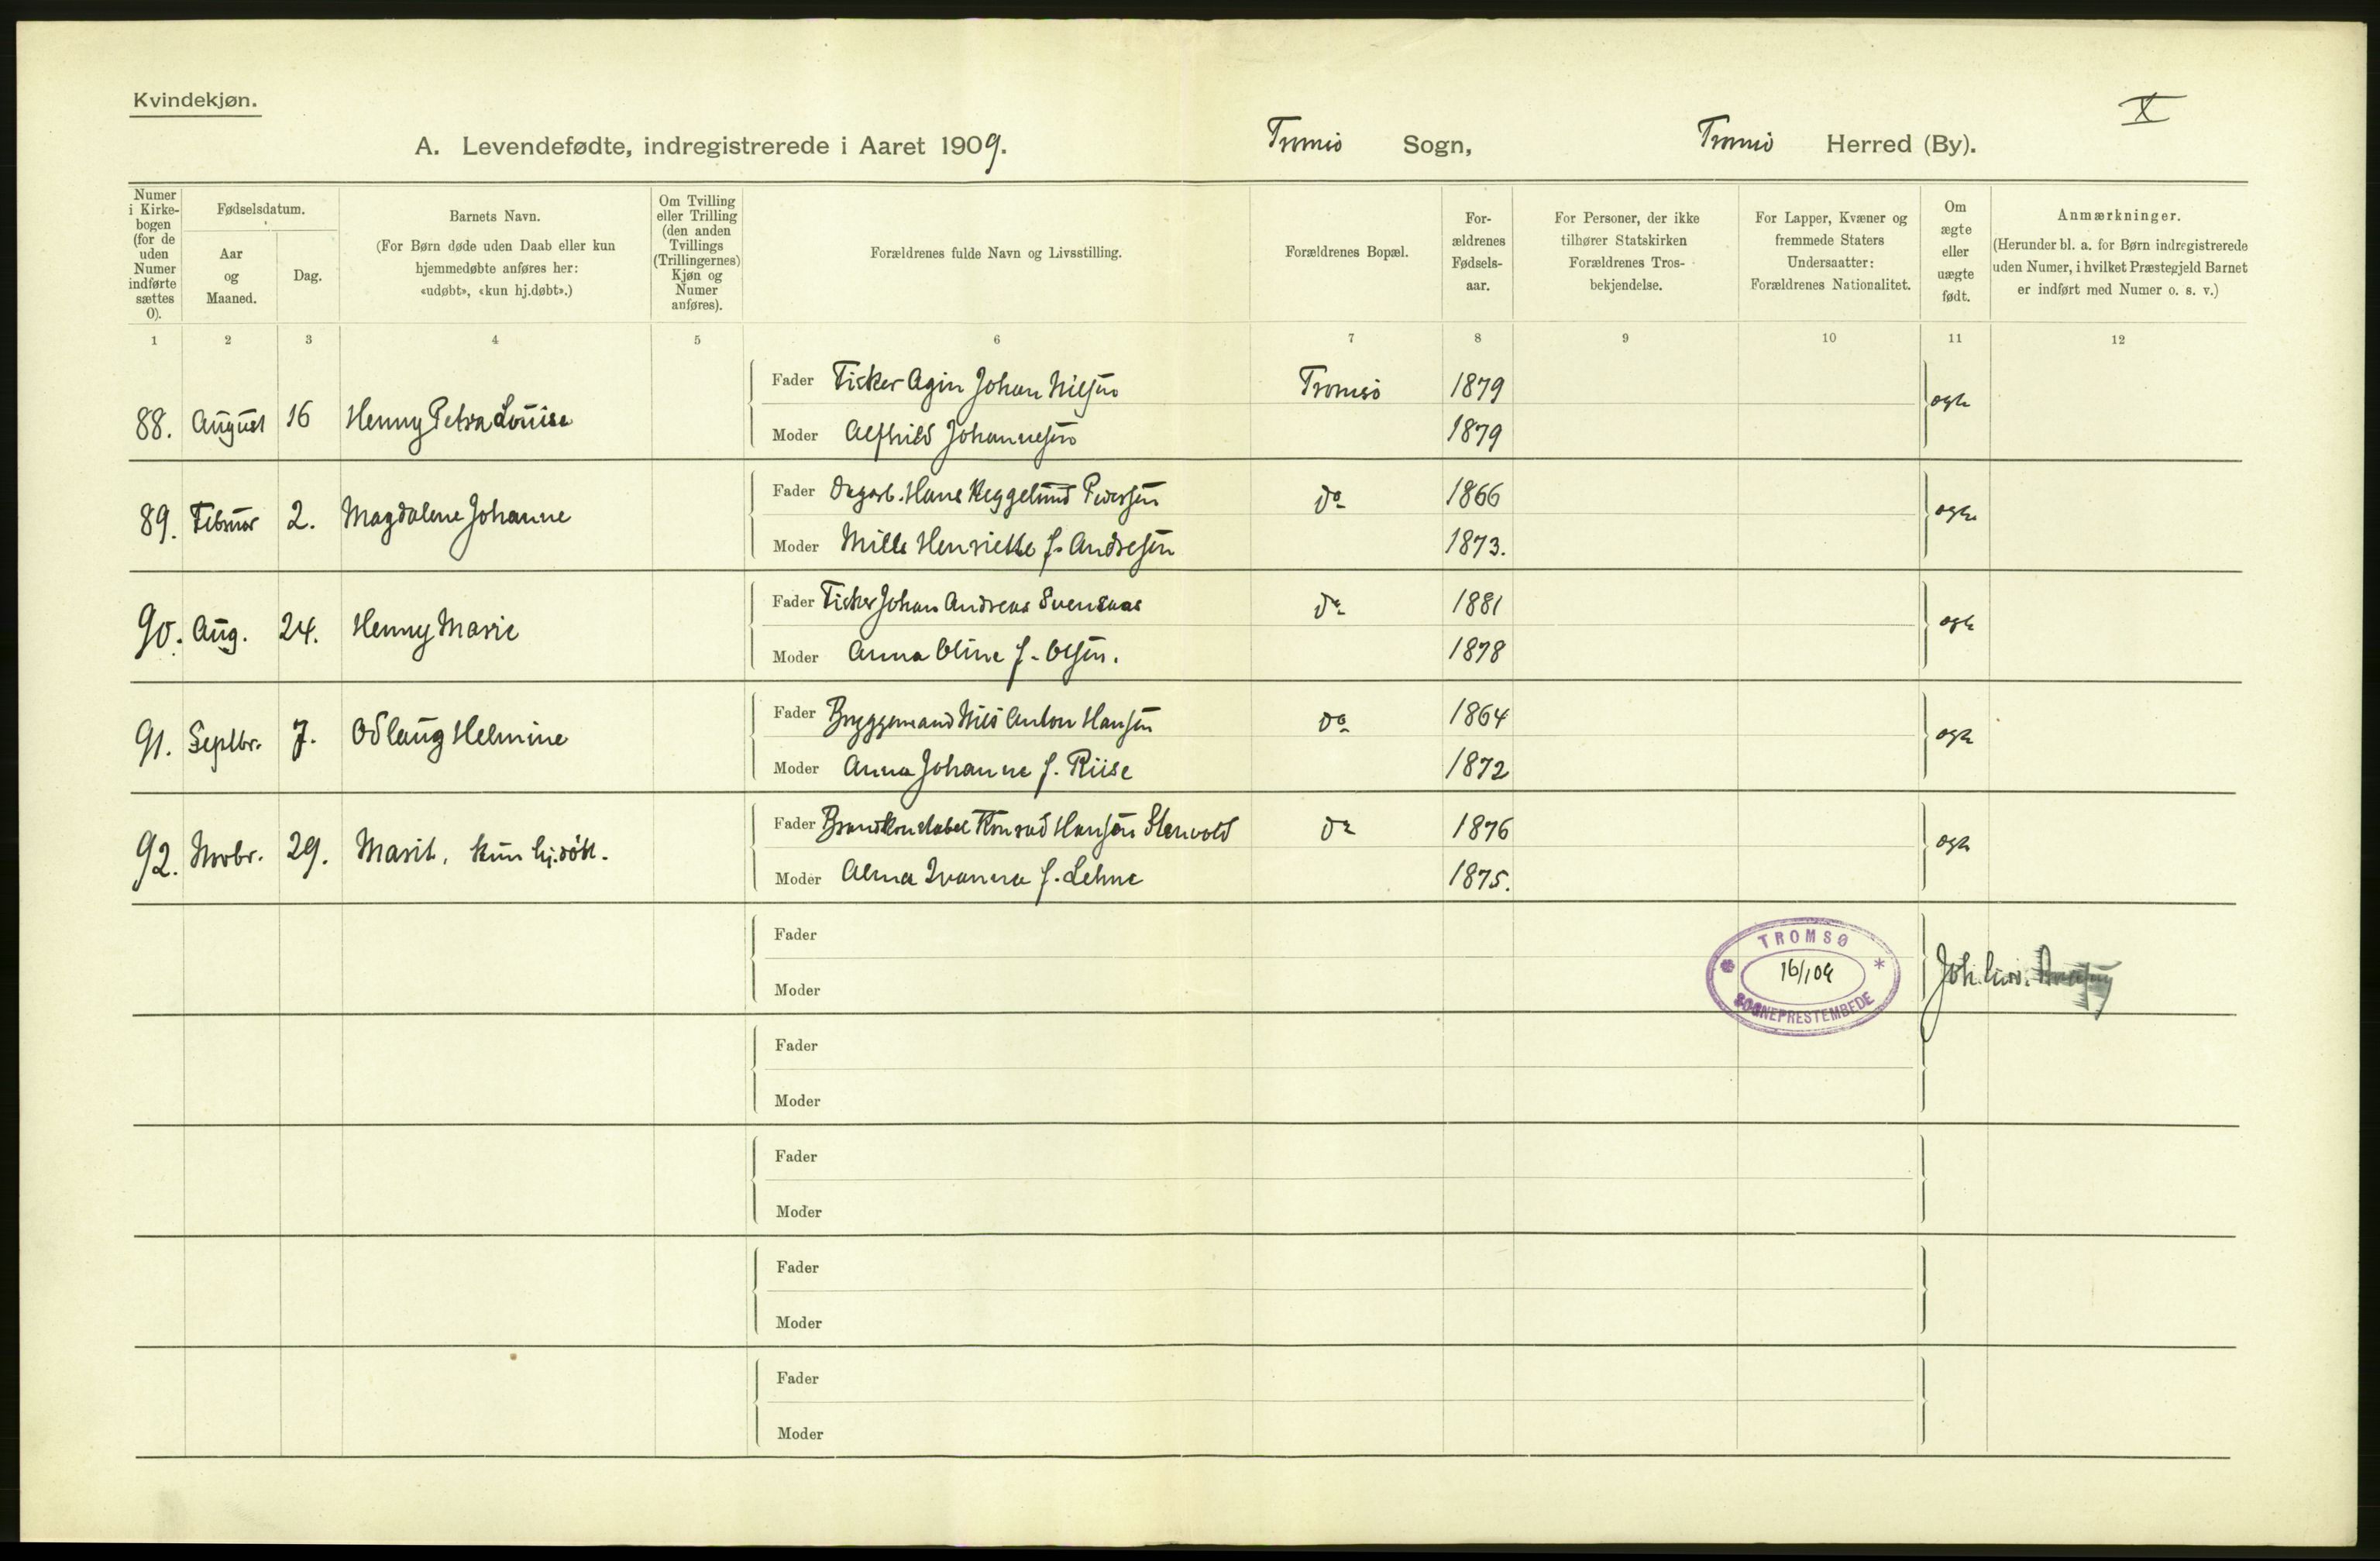 Kvindekjøn.
X
A. Levendefødte, indregistrerede i Aaret 1909. Tromsø Sogn, Tromsø Herred (By).
Numer i Kirke-bogen (for de uden Numer indførte sættes 0).
Fødselsdatum.
Aar og Maaned.
Dag.
Barnets Navn.
(For Børn døde uden Daab eller kun hjemmedøbte anføres her: «udøbt», «kun hj.døbt».)
Om Tvilling eller Trilling (den anden Tvillings (Trillingernes) Kjøn og Numer anføres).
Forældrenes fulde Navn og Livsstilling.
Forældrenes Bopæl.
For-ældrenes Fødsels-aar.
For Personer, der ikke tilhører Statskirken Forældrenes Tros-bekjendelse.
For Lapper, Kvæner og fremmede Staters Undersaatter: Forældrenes Nationalitet.
Om ægte eller uægte født.
Anmærkninger.
(Herunder bl. a. for Børn indregistrerede uden Numer, i hvilket Præstegjeld Barnet er indført med Numer o. s. v.)
1 2 3 4 5 6 7 8 9 10 11 12
Fader Fisker Agin Johan Nilsen Tromsø 1879
88. August 16 Henny Petra Louise ægte
Moder Alfhild Johannesen 1879
Fader Dagarb. Hans Heggelund Pedersen do 1866
89. Februar 2. Magdalene Johanne ægte
Moder Mille Henriette f. Andresen 1873.
Fader Fisker Johan Andreas Svensaas do 1881
90. Aug. 24. Henny Marie ægte
Moder Anna Oline f. Olsen. 1878
Fader Bryggemand Nils Anton Hansen do 1864
91. Septbr. 7. Odlaug Helmine ægte
Moder Anna Johanne f. Riise 1872
Fader Brandkonstabel Konrad Hansen Stenvold do 1876
92. Novbr. 29. Marit, kun hj.døbt. ægte
Moder Alma Ivanna f. Lehne 1875.
Fader
TROMSØ
16/1 09
SOGNEPRESTEMBEDE
Joh.
Moder
Fader
Moder
Fader
Moder
Fader
Moder
Fader
Moder